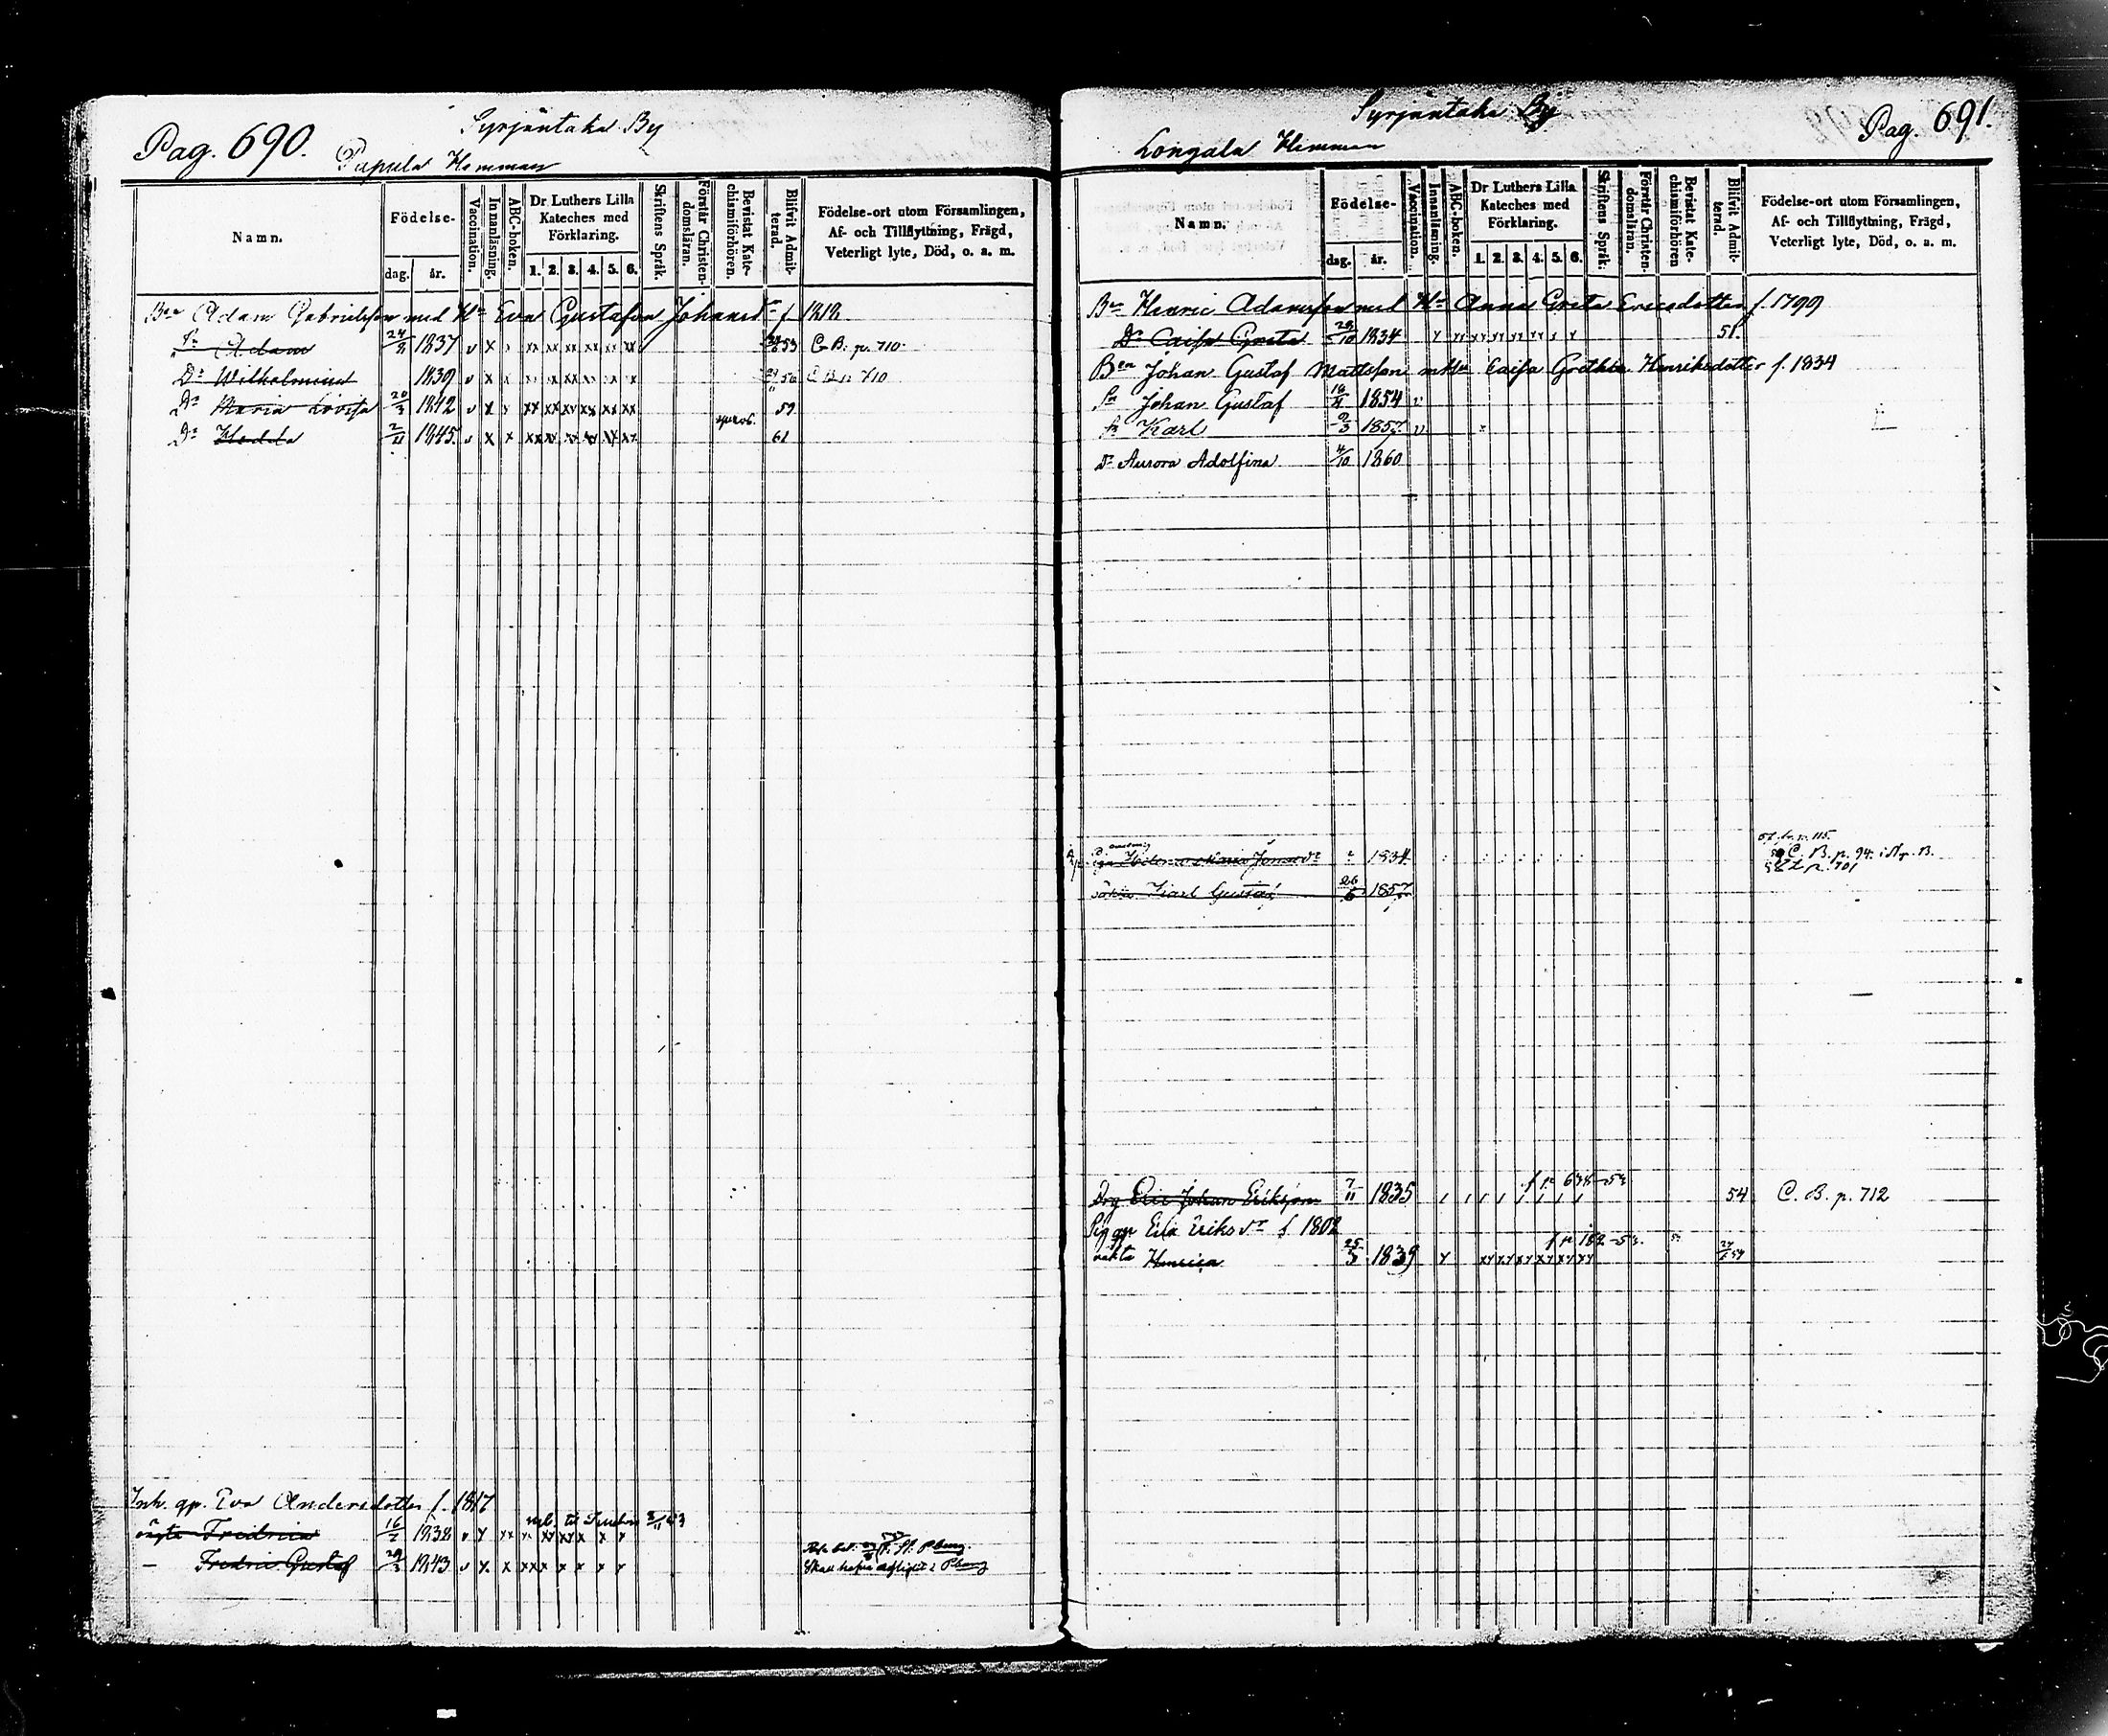 Pag. 690.
Syrjäntaka By
Papula Hemman
Namn.
Födelse-
dag. år.
Vaccination.
Innanläsning.
ABC-boken.
Dr Luthers Lilla Kateches med Förklaring.
1. 2. 3. 4. 5. 6.
Skriftens Språk.
Förstår Christendomsläran.
Bevistat Katechismiförhören.
Blifvit Admitterad.
Födelse-ort utom Församlingen,
Af- och Tillflyttning, Frägd,
Veterligt lyte, Död, o. a. m.
Bn Adam Gabrielsson med Hu Eva Gustafva Johansdr f 1812
Sn Adam 24/11 1837 v x 53 C B. p. 710
Dr Wilhelmina 1839 v x 56 C B p 710
Dr Maria Lovisa 20/3 1842 v x xx xx xx xx xx xx 59
Dr Hedda 2/11 1845 v x x 61
Inh. gp. Eva Andersdotter f. 1817
oägta Fredrica 16/2 1838 v
— Fredric Gustaf 29/3 1843 v x x
Syrjäntaka By
Pag. 691.
Longala Hemman
Namn.
Födelse-
dag. år.
Vaccination.
Innanläsning.
ABC-boken.
Dr Luthers Lilla Kateches med Förklaring.
1. 2. 3. 4. 5. 6.
Skriftens Språk.
Förstår Christendomsläran.
Bevistat Katechismiförhören
Blifvit Admitterad.
Födelse-ort utom Församlingen,
Af- och Tillflyttning, Frägd,
Veterligt lyte, Död, o. a. m.
Bn Henric Adamsson med Hu Anna Greta Ericsdotter f. 1799
Dr Caisa Greta 29/10 1834 51.
Bon Johan Gustaf Mattsson m Hu Caisa Gretha Henriksdotter f. 1834
Sn Johan Gustaf 1854 v
Sn Karl 2/3 1857 v
Dr Aurora Adolfina 4/10 1860
Maria 1834 C. B. p. 94.
Karl Gustaf 26/6 1857
f p 638-53
Drg Eric Johan Eriksson 7/11 1835 54 C. B. p. 712
Eva Eriksdr f. 1802
f p 182-53.
oäkta Henrica 25/3 1839